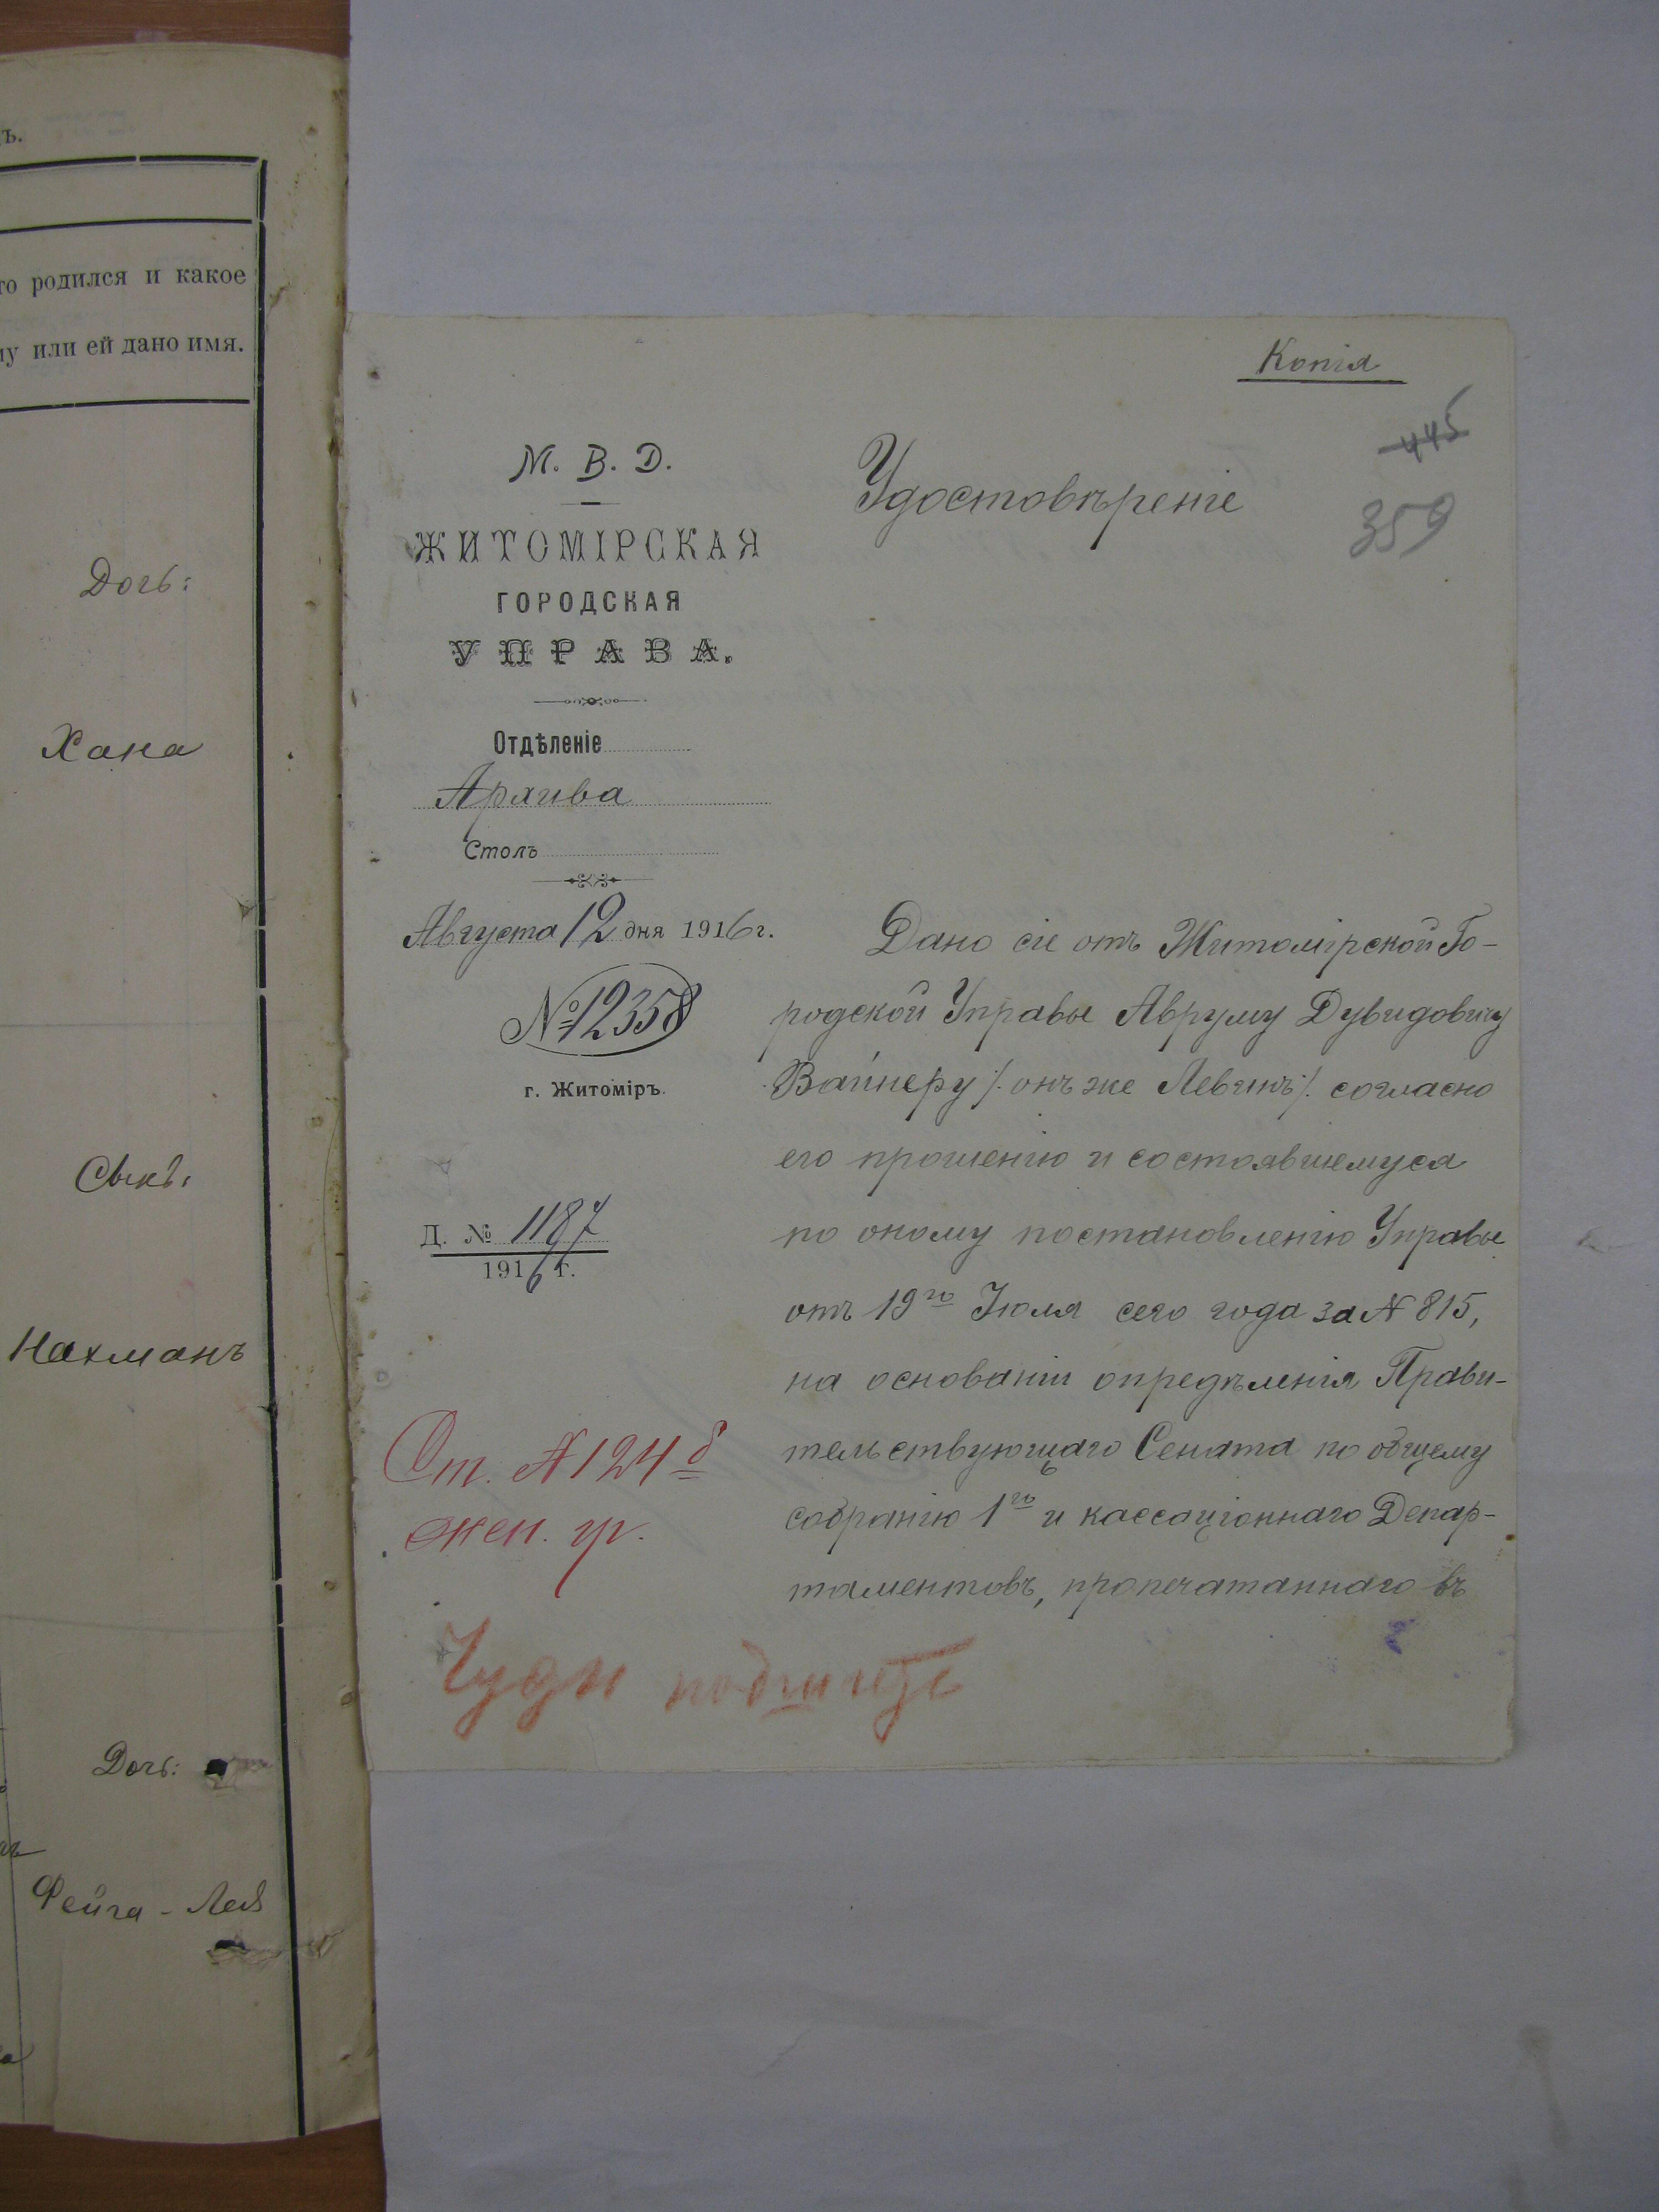 ъ.
го родился и какое
му или ей дано имя.
Дочь:
Хана
Сынъ:
Нахманъ
Дочь:
Фейга - Лея
Копія
445
359
М. В. Д.
ЖИТОМІРСКАЯ
ГОРОДСКАЯ
УПРАВА.
Отдѣленіе
Архива
Столъ
Августа 12 дня 1916 г.
№ 12358
г. Житоміръ.
Д. № 1187
1916 г.
Ст. № 124 б
жен. гр.
подшить
Удостовѣреніе
Дано сіе отъ Житомірской Го-
родской Управы Авруму Дувидовичу
Вайнеру /. онъ же Левинъ /. согласно
его прошенію и состоявшемуся
по оному постановленію Управы
отъ 19го Іюля сего года за № 815,
на основаніи опредѣленія Прави-
тельствующаго Сената по общему
собранію 1го и кассаціоннаго Депар-
таментовъ, пропечатаннаго въ